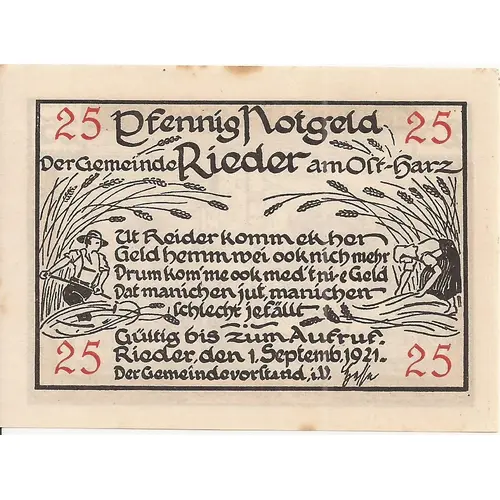 25 Pfennig Notgeld 25
Der Gemeinde Rieder am Ost-Harz
Ut Reider komm ek her
Geld hemm wei ook nich mehr
Drum kom' me ook med't ni-e Geld
Dat manichen jut, manichen
schlecht jefällt
Gültig bis zum Aufruf.
25 Rieder, den 1. Septemb. 1921. 25
Der Gemeindevorstand, i.V.